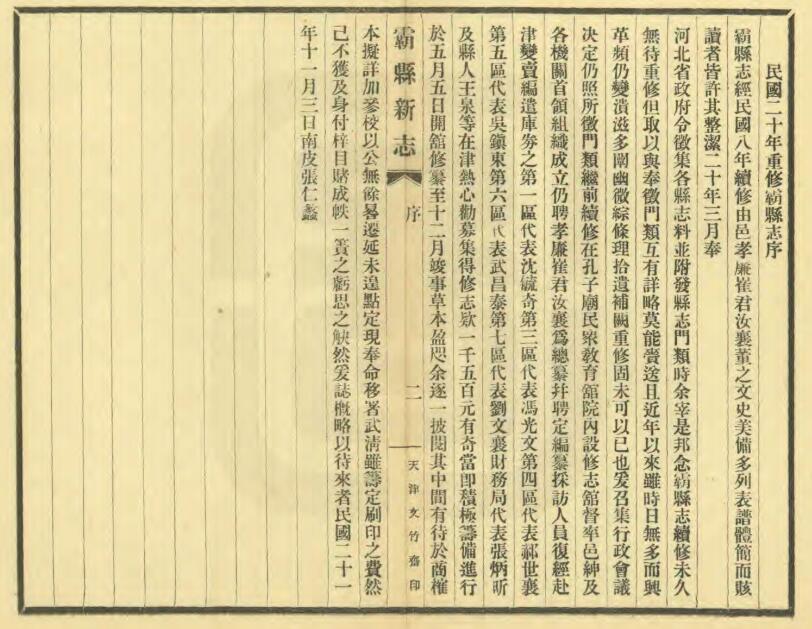 民國二十年重修霸縣志序
霸縣志經民國八年續修由邑孝廉崔君汝襄董之文史美備多列表譜體簡而賅
讀者皆許其整潔二十年三月奉
河北省政府令徵集各縣志料並附發縣志門類時余宰是邦念霸縣志續修未久
無待重修但取以與奉徵門類互有詳略莫能賷送且近年以來雖時日無多而興
革頻仍變潰滋多闡幽微綜條理拾遺補闕重修固未可以已也爰召集行政會議
決定仍照所徵門類繼前續修在孔子廟民衆敎育舘院內設修志舘督率邑紳及
各機關首領組織成立仍聘孝廉崔君汝襄爲總纂幷聘定編纂採訪人員復經赴
津變賣編遣庫劵之第一區代表沈毓奇第三區代表馮光文第四區代表郝世襄
第五區代表吳鎭東第六區代表武昌泰第七區代表劉文襄財務局代表張炳昕
及縣人王泉等在津熱心勸募集得修志欵一千五百元有奇當卽積極籌備進行
於五月五日開舘修纂至十二月竣事草本盈咫余逐一披閱其中間有待於商榷
霸縣新志
序
二
天津文竹齋印
本擬詳加參校以公無餘晷遷延未遑點定現奉命移署武淸雖籌定刷印之費然
己不獲及身付梓目賭成帙一簣之虧思之觖然爰誌槪略以待來者民國二十一
年十一月三日南皮張仁蠡